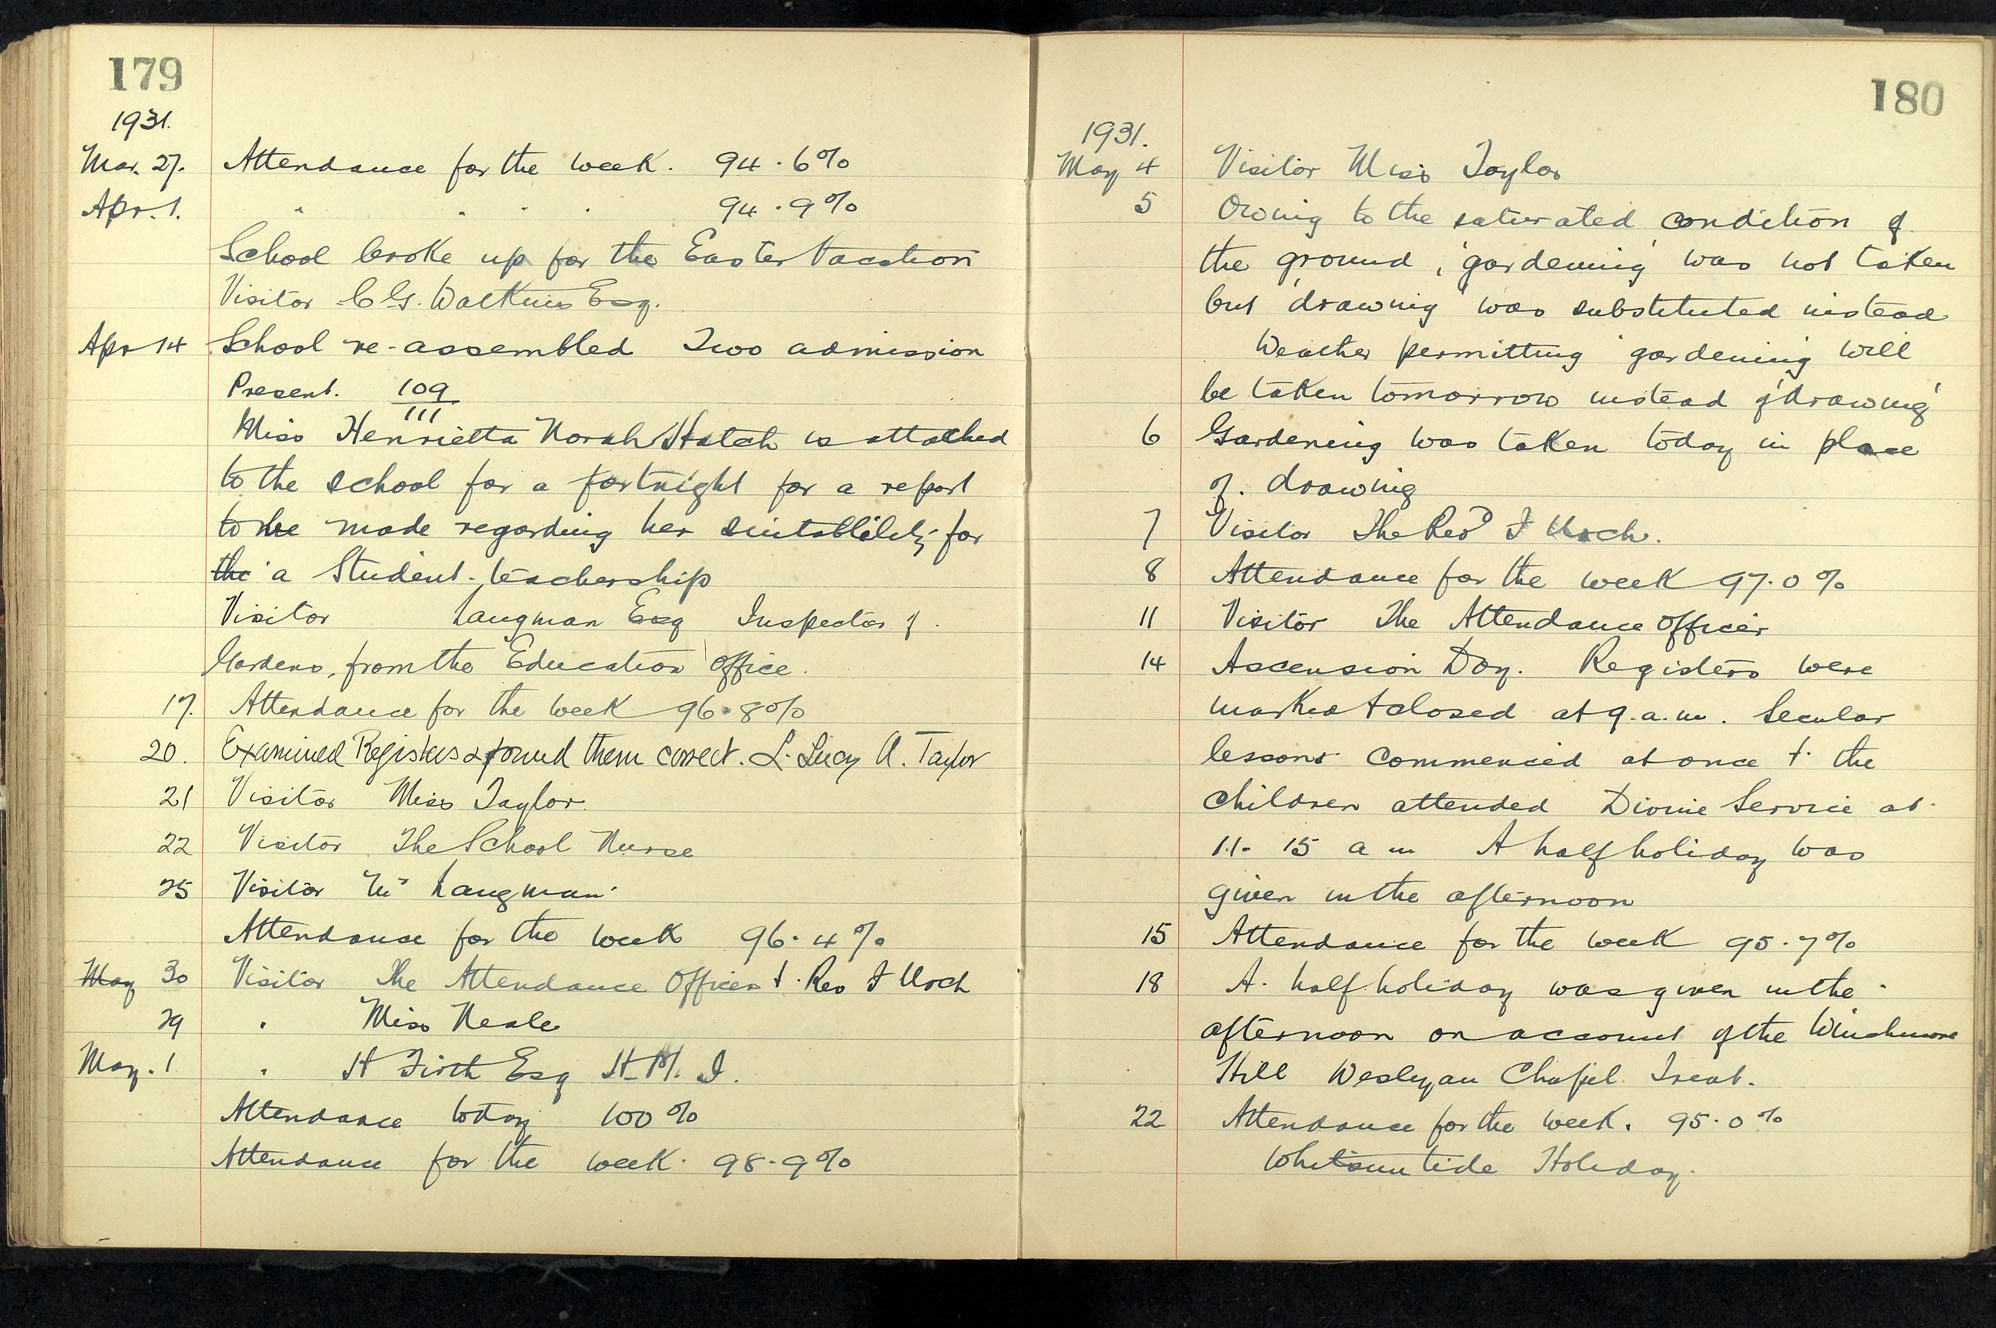 179
1931.
Mar. 27. Attendance for the week. 94.6%
Apr. 1. " " " " 94.9%
School broke up for the Easter Vacation
Visitor C G. Watkins Esq.
Apr 14 School re-assembled Two admission
Present. 109
111
Miss Henrietta Norah Hatch is attached
to the school for a fortnight for a report
to be made regarding her suitability for
the a Student-teachership
Visitor Langman Esq Inspector of
Gardens, from the Education Office.
17. Attendance for the week 96.8%
20. Examined Registers & found them correct. L. Lucy A. Taylor
21 Visitor Miss Taylor.
22 Visitor The School Nurse
25 Visitor Mr Langman
Attendance for the week 96.4%
May 30 Visitor The Attendance Officer & Rev J
29 " Miss Neale
May. 1 " H Firth Esq H.M.I.
Attendance today 100%
Attendance for the week. 98.9%
180
1931.
May 4 Visitor Miss Taylor
5 Owing to the saturated condition of
the ground, 'gardening' was not taken
but 'drawing' was substituted instead
Weather permitting 'gardening will
be taken tomorrow instead of 'drawing'
6 Gardening was taken today in place
of. drawing
7 Visitor The Revd J
8 Attendance for the week 97.0%
11 Visitor The Attendance Officer
14 Ascension Day. Registers were
marked & closed at 9.a.m. Secular
lessons commenced at once & the
children attended Divine Service at
11.15 a m A half holiday was
given in the afternoon
15 Attendance for the week 95.7%
18 A. half holiday was given in the
afternoon on account of the Winchmore
Hill Wesleyan Chapel Treat.
22 Attendance for the week. 95.0%
Whitsuntide Holiday.